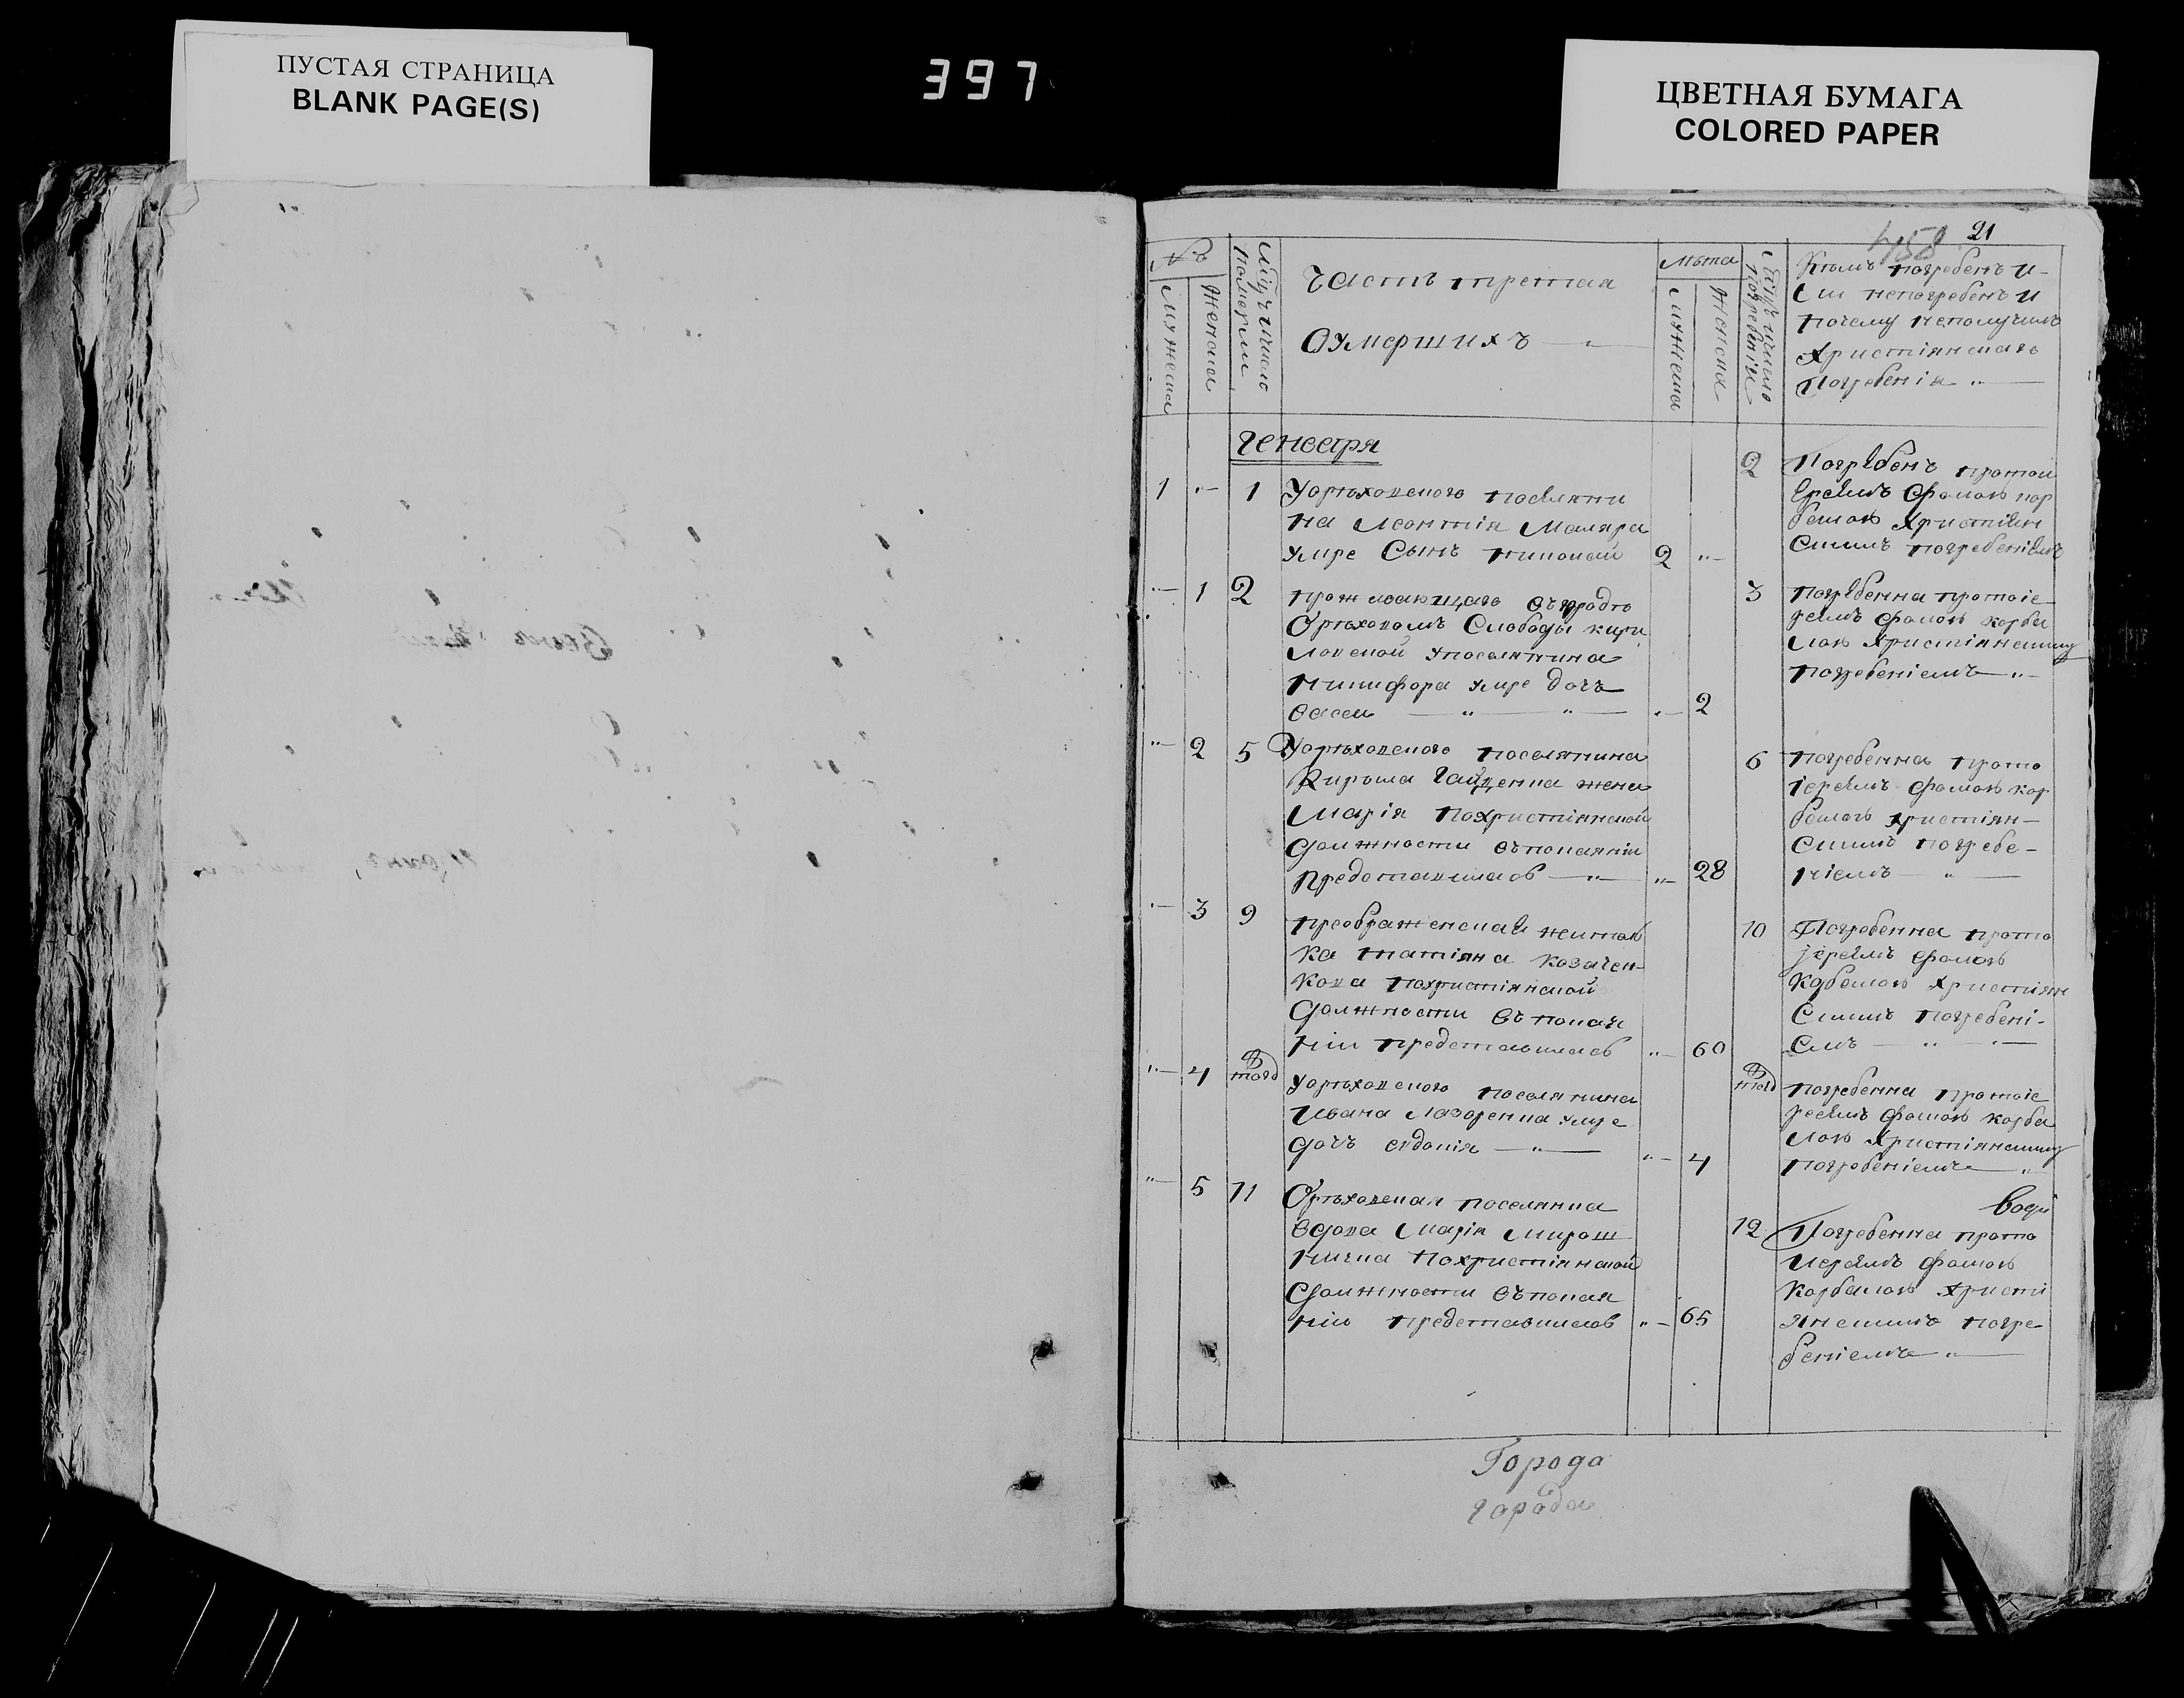 ПУСТАЯ СТРАНИЦА
BLANK PAGE(S)
397
ЦВЕТНАЯ БУМАГА
COLORED PAPER
458 21
№
Мужеска
Женска
Мцъ и число
Померли
Часть третая
О умершихъ
Лѣта
Мужеска
Женска
Мцъ и число
погребенiи
Кѣмъ погребенъ и
ли непогребенъ и
почему неполучилъ
Христiянскаго
Погребенiя
Генваря
1 1
Уорѣховского поселяни
на Леонтiя Маляра
умре Сынъ николай 2
2
Погребенъ протои
Ереемъ Фомою кор
белою Христiян
Скимъ погребенiемъ
1 2
проживающаго въградѣ
Орѣховомъ Слободы кири
ловской упоселянина
Никифора умре дочъ
2
3
погребенна протоiе
реемъ Фомою корбе
лою Христiянскимъ
погребенiемъ
2 5
Уорѣховского поселянина
Кирыла Гайденка жена
Марiя Похристiянской
должности въпокаянiи
Представилась 28
6
погребенна прото
iереемъ Фомою кор
белою христiян
Скимъ погребе-
нiемъ
3 9
преображенская житель
ка татiяна козачен-
кова похристiянской
должности въ покая
нiи представилась 60
10
Погребенна прото
iереемъ Фомою
Корбелою Христiян
Скимъ погребенi-
емъ
4 тогд
Уорѣховского поселянина
Ивана Лазоренка умре
дочъ евдокiя 4
тогд
погребенна протоiе
реемъ Фомою корбе
лою Христiянскимъ
погребенiемъ
5 11
Орѣховская поселянка
вдова Марiя Мирош
ничка Похристiянской
должности въпокая
нiи представилась 65
12
Погребенна прото
иереемъ Фомою
Корбелою Христi
янскимъ погре-
бенiемъ
Города
города